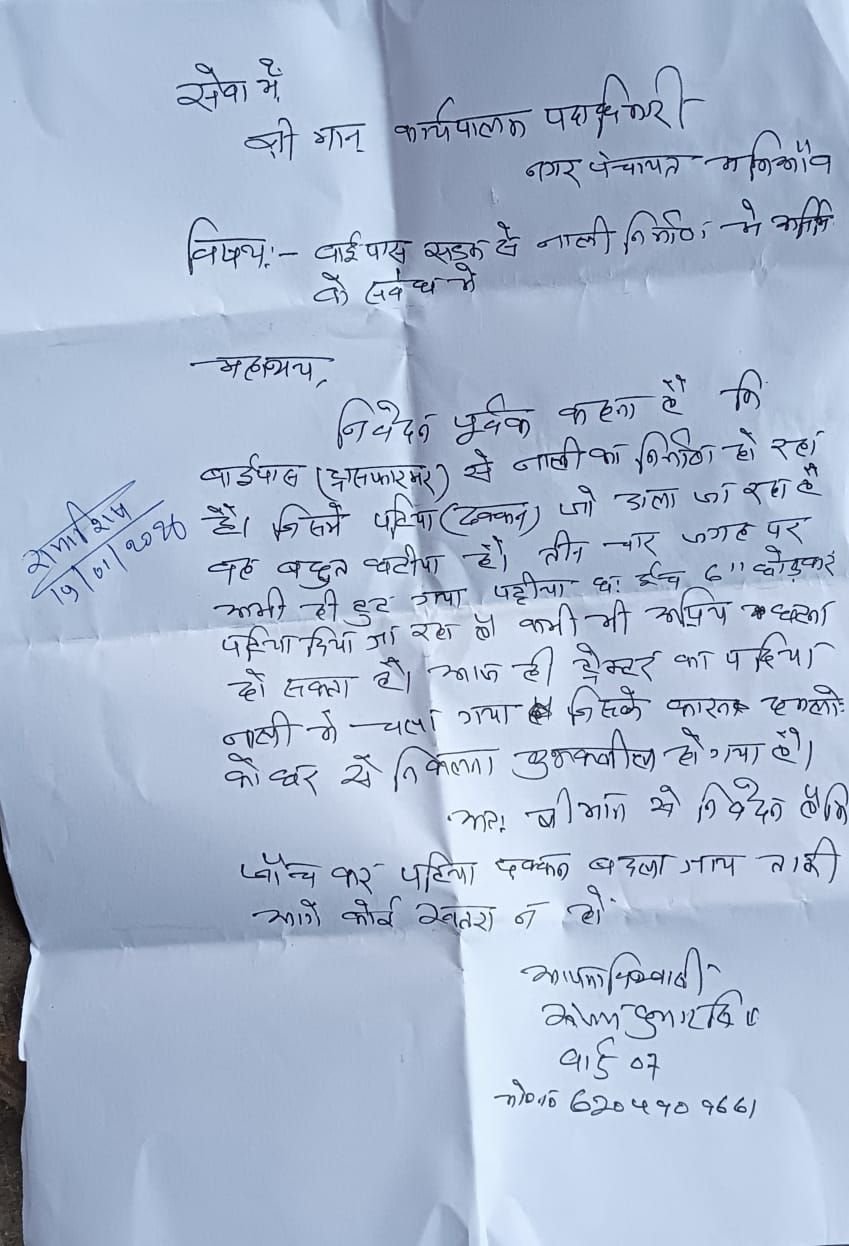 सेवा में,
श्री मान् कार्यपालक पदाधिकारी
नगर पंचायत
विषय:- बाईपास सड़क से नाली निर्माण में
के संबंध में
महाशय,
निवेदन पूर्वक कहना है कि
बाईपास (ट्रांसफारमर) से नाली का निर्माण हो रहा
है। जिसमे पटिया (ढक्कन) जो डाला जा रहा है
वह बहुत घटीया है। तीन चार जगह पर
अभी ही टुट गया पटीया छः ईंच 6" छोड़कर
पटिया दिया जा रहा है कभी भी अप्रिय घटना
हो सकता है। आज ही ट्रेक्टर का पहिया
नाली में चला गया जिसके कारन हमलो
को घर से निकलना हो गया है।
अतः श्रीमान से निवेदन है कि
जाँच कर पटिया ढक्कन बदला जाय ताकी
आगे कोई खतरा न हो
कुमार
वार्ड 07
मो०न० 6204909661
19/01/2026